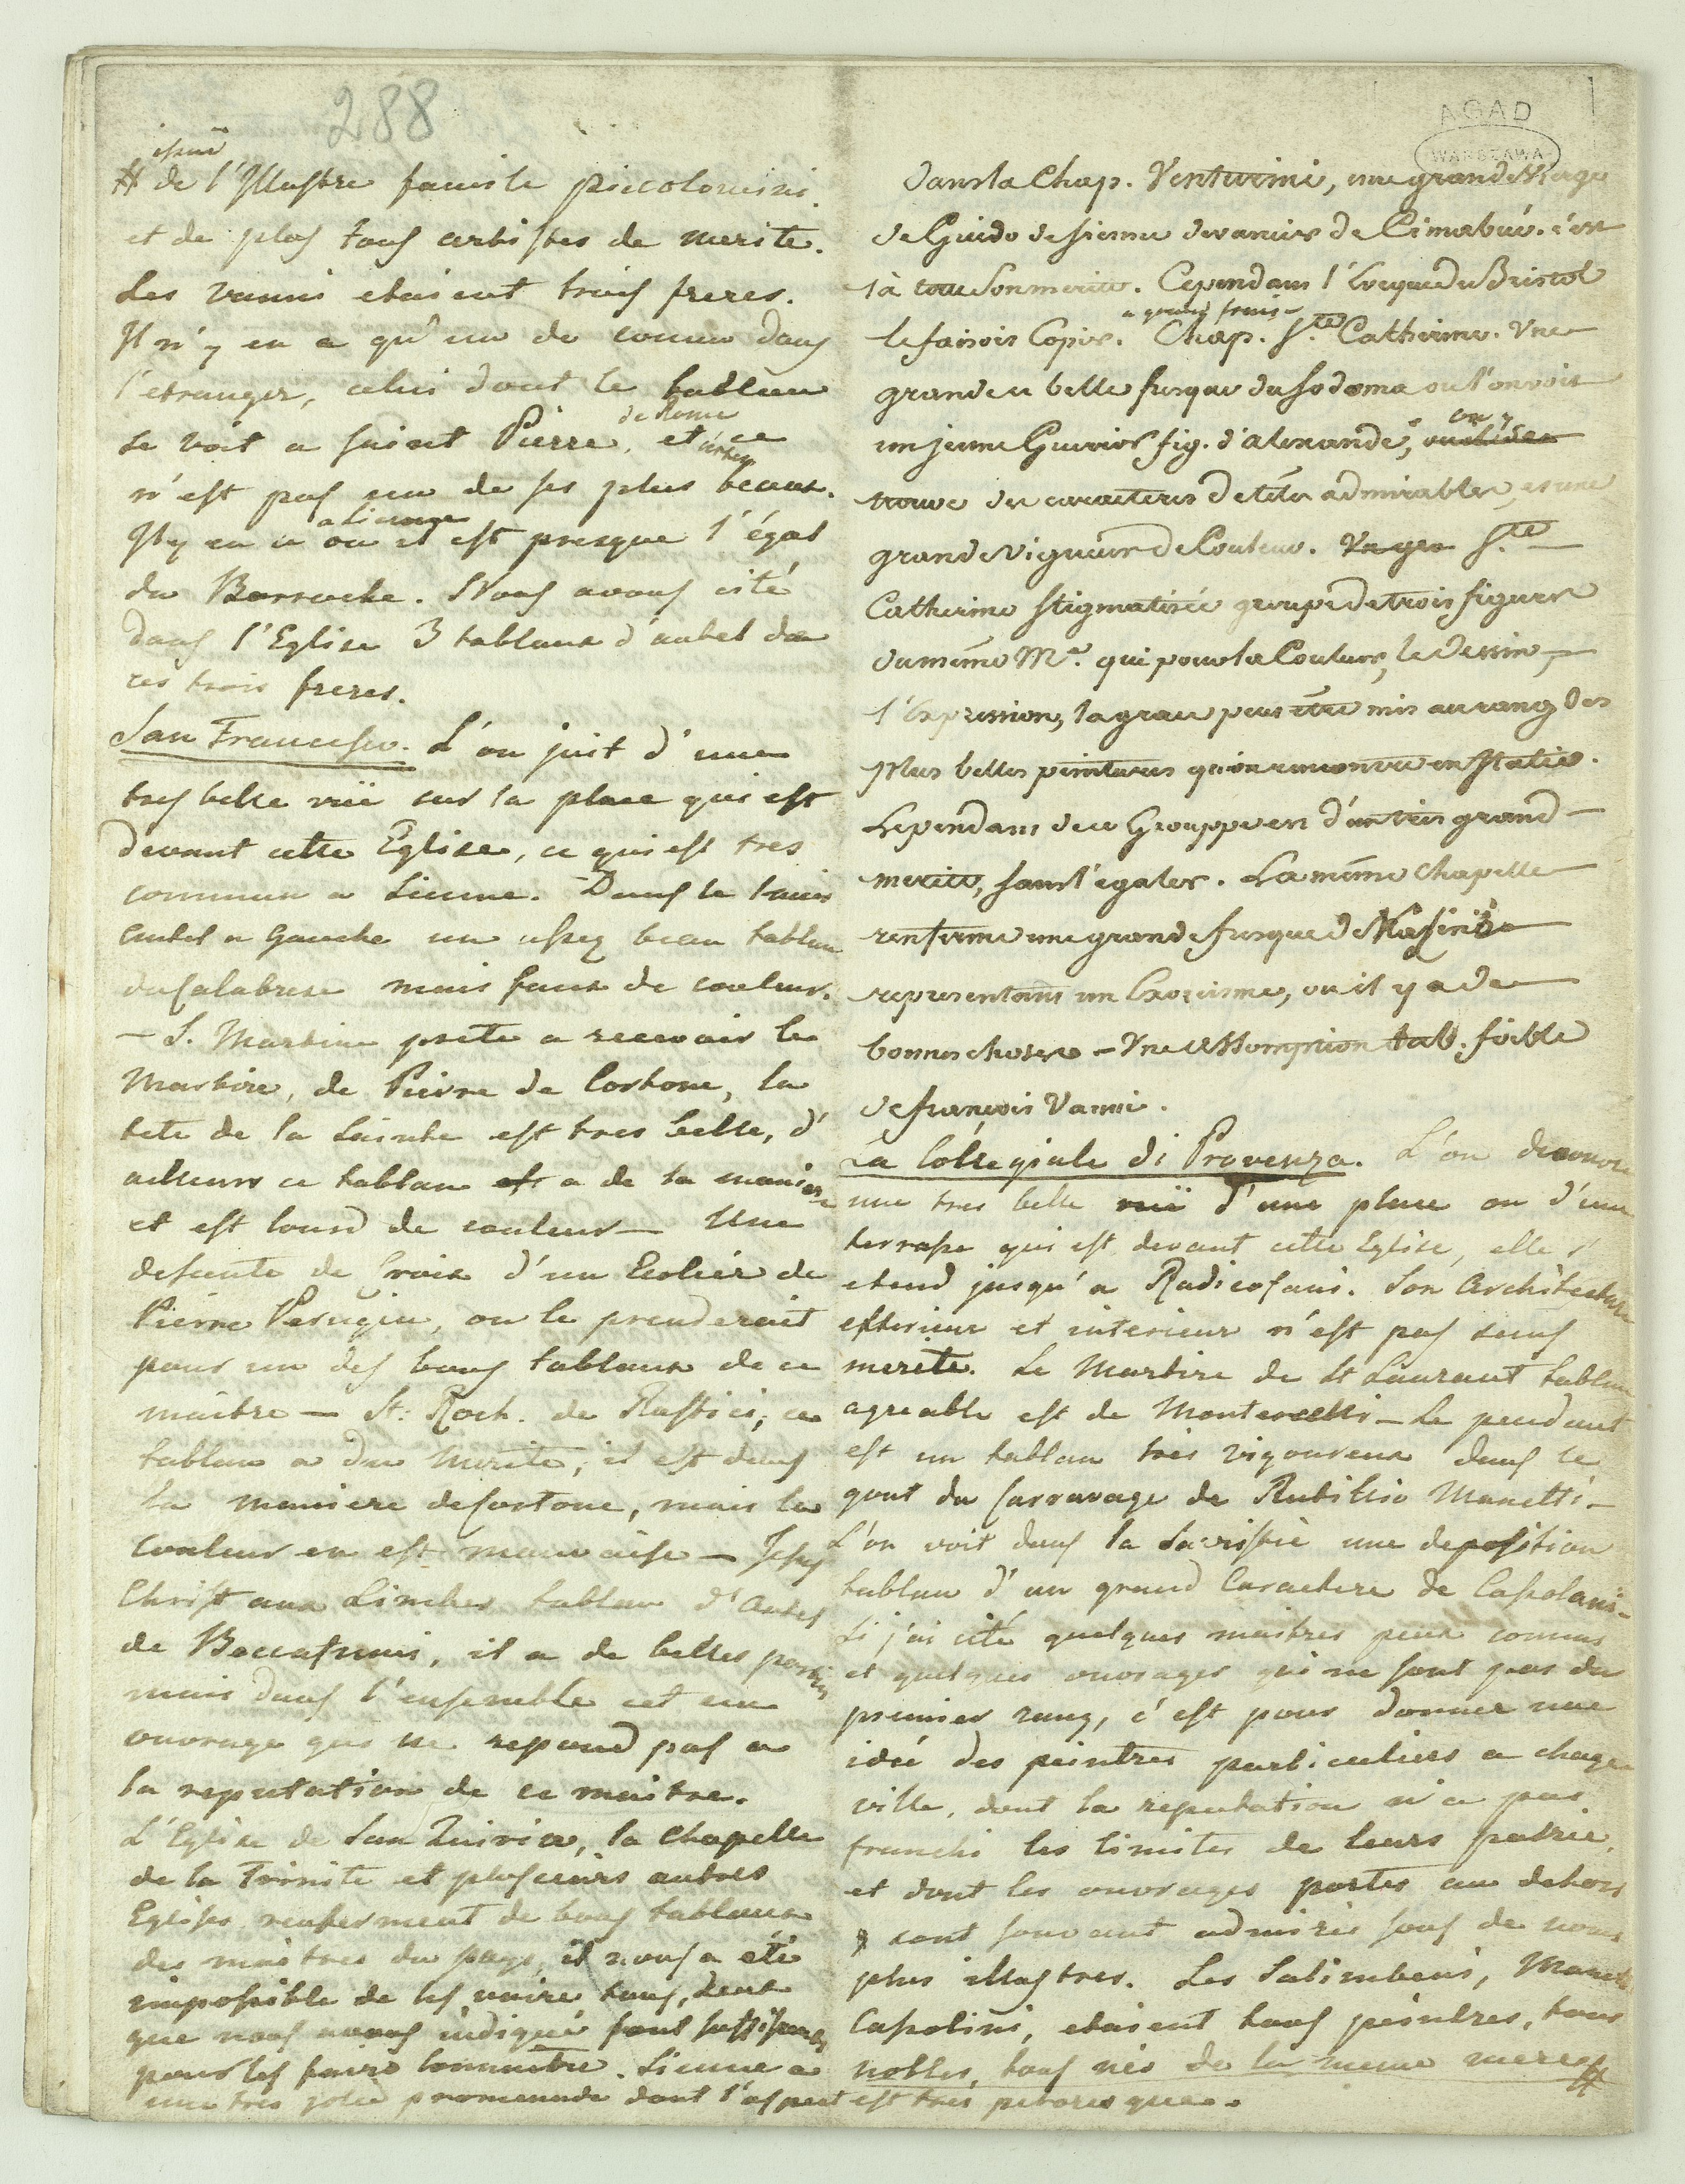 288
issüe
# de l'Illustre famile piccolomini.
et de plus tous artistes de merite.
Les vanni etaient trois freres.
Il n'y en a qu'un de connu dans
l'etranger, celui dont le tableau
se voit a saint Pierre de Rome, et ce
n'est pas un de ses plus beaux.
Il y en a a Sienne ou il est presque l'égal
du Barroche. Nous avons cité
dans l'Eglise 3 tableaux d'autel de
ces trois freres.
San Francesco. L'on juit d'une
tres belle vüe sur la place qui est
devant cette Eglise, ce qui est tres
commun a Sienne. Dans le
autel a Gauche un assez beau tableau
du Calabrese mais faux de couleur.
— S. Martine prete a recevoir le
Martire, de Pierre de Cortone, la
tete de la Sainte est tres belle, d'
ailleurs ce tableau a de la maniere
et est lourd de couleur — Une
descente de Croix d'un Ecolier de
Pierre Perugin, on le prenderoit
pour un des bons tableaux de ce
maitre — St: Roch. de Rustici, ce
tableau a du merite, il est dans
la maniere de Cortone, mais la
couleur en est mauvaise — Jesus
Christ aux Limbes tableau d'Autel
de Beccafumi, il a de belles parties
mais dans l'ensemble cet un
ouvrage qui ne repond pas a
la reputation de ce maitre.
L'Eglise de San Quirico, la Chapelle
de la Trinite et plusieurs autres
Eglises, renferment de bons tableaux
des maitres du pays, il nous a été
impossible de les voire tous, deux
que nous avons indiqué sont suffisans
pour les faire connaitre. Sienne a
une tres jolie promenade dont l'aspect est très pitoresque.
AGAD
WARSZAWA
Dans la Chap. Venturini, une grande Vierge
de Guido de Sienne devancier de Cimabué. c'est
là tout son merite. Cependant l'Eveque de Bristol
a grand frais
le faisoit Copier. Chap. Ste Catherine. Une
grande et belle fresque du Sodoma ou l'on voit
un jeune Guerrier fig. d'alexandre, on y
trouve des caracteres de têtes admirables, et une
grande vigueur de Couleur. Ste
Catherine Stigmatisée groupe de trois figures
du même Me. qui pour la Couleur, le Dessin,
l'Expression, la grace peut être mis au rang des
plus belles peintures qu'on rencontre en Italie.
Le pendant de ce Grouppe est d'un très grand
merite, sans l'egaler. La même Chapelle
renferme une grande fresque de
representant un Exorcisme, ou il y a de
bonnes choses — Une Assomption tab. foible
de françois Vanni.
La Collegiale di Provenza. L'on decouvre
une tres belle vüe d'une place ou d'une
terrasse qui est devant cette Eglise, elle s'
etend jusqu'a Radicofani. Son Architecture
exterieur et interieur n'est pas sans
merite. Le Martire de St Laurant tableau
agreable est de — Le pendant
est un tableau très vigoureux dans le
gout du Carravage de Rutilio Manetti —
L'on voit dans la Sacristie une deposition
tableau d'un grand Caractere de Casolani —
Si j'ai cité quelques maitres peux connus
et quelques ouvrages qui ne sont pas du
premier rang, c'est pour donner une
idée des peintres particuliers a chaque
ville, dont la reputation n'a pas
franchi les limites de leurs patrie,
et dont les ouvrages portés au dehors
sont souvant admirés sous de noms
plus illustres. Les Salimbeni, Manetti
Casolini, etaient tous peintres, tous
nobles, tous nés de la meme mere #